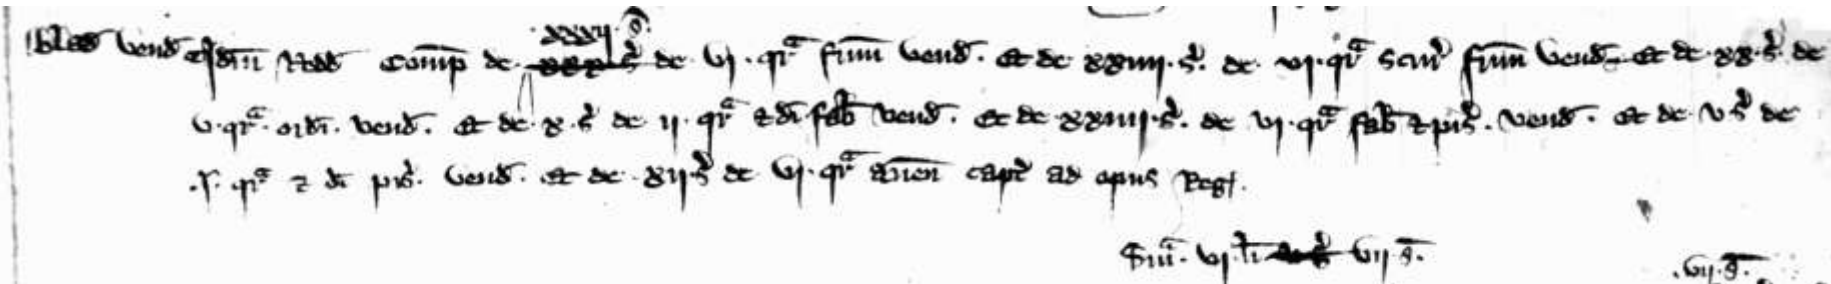 xxxij.s.
Blad vend Idm Redd Comp de xxx.s. de vj.qrª frum vend. Et de xxiiij.s. de vj.qrª scur frum vend. Et de xx.s. de
v.qrª ordi. vend. Et de x.s. de ij.qrª & di fab vend. Et de xxiiij.s. de vj.qrª fab & pis. vend. Et de v s. de
.j.qrª & di pis. vend. Et de xij.s. de vj.qrª auen capt ad opus Reg.
Sum. vj.li vij.s.
.vij.s.